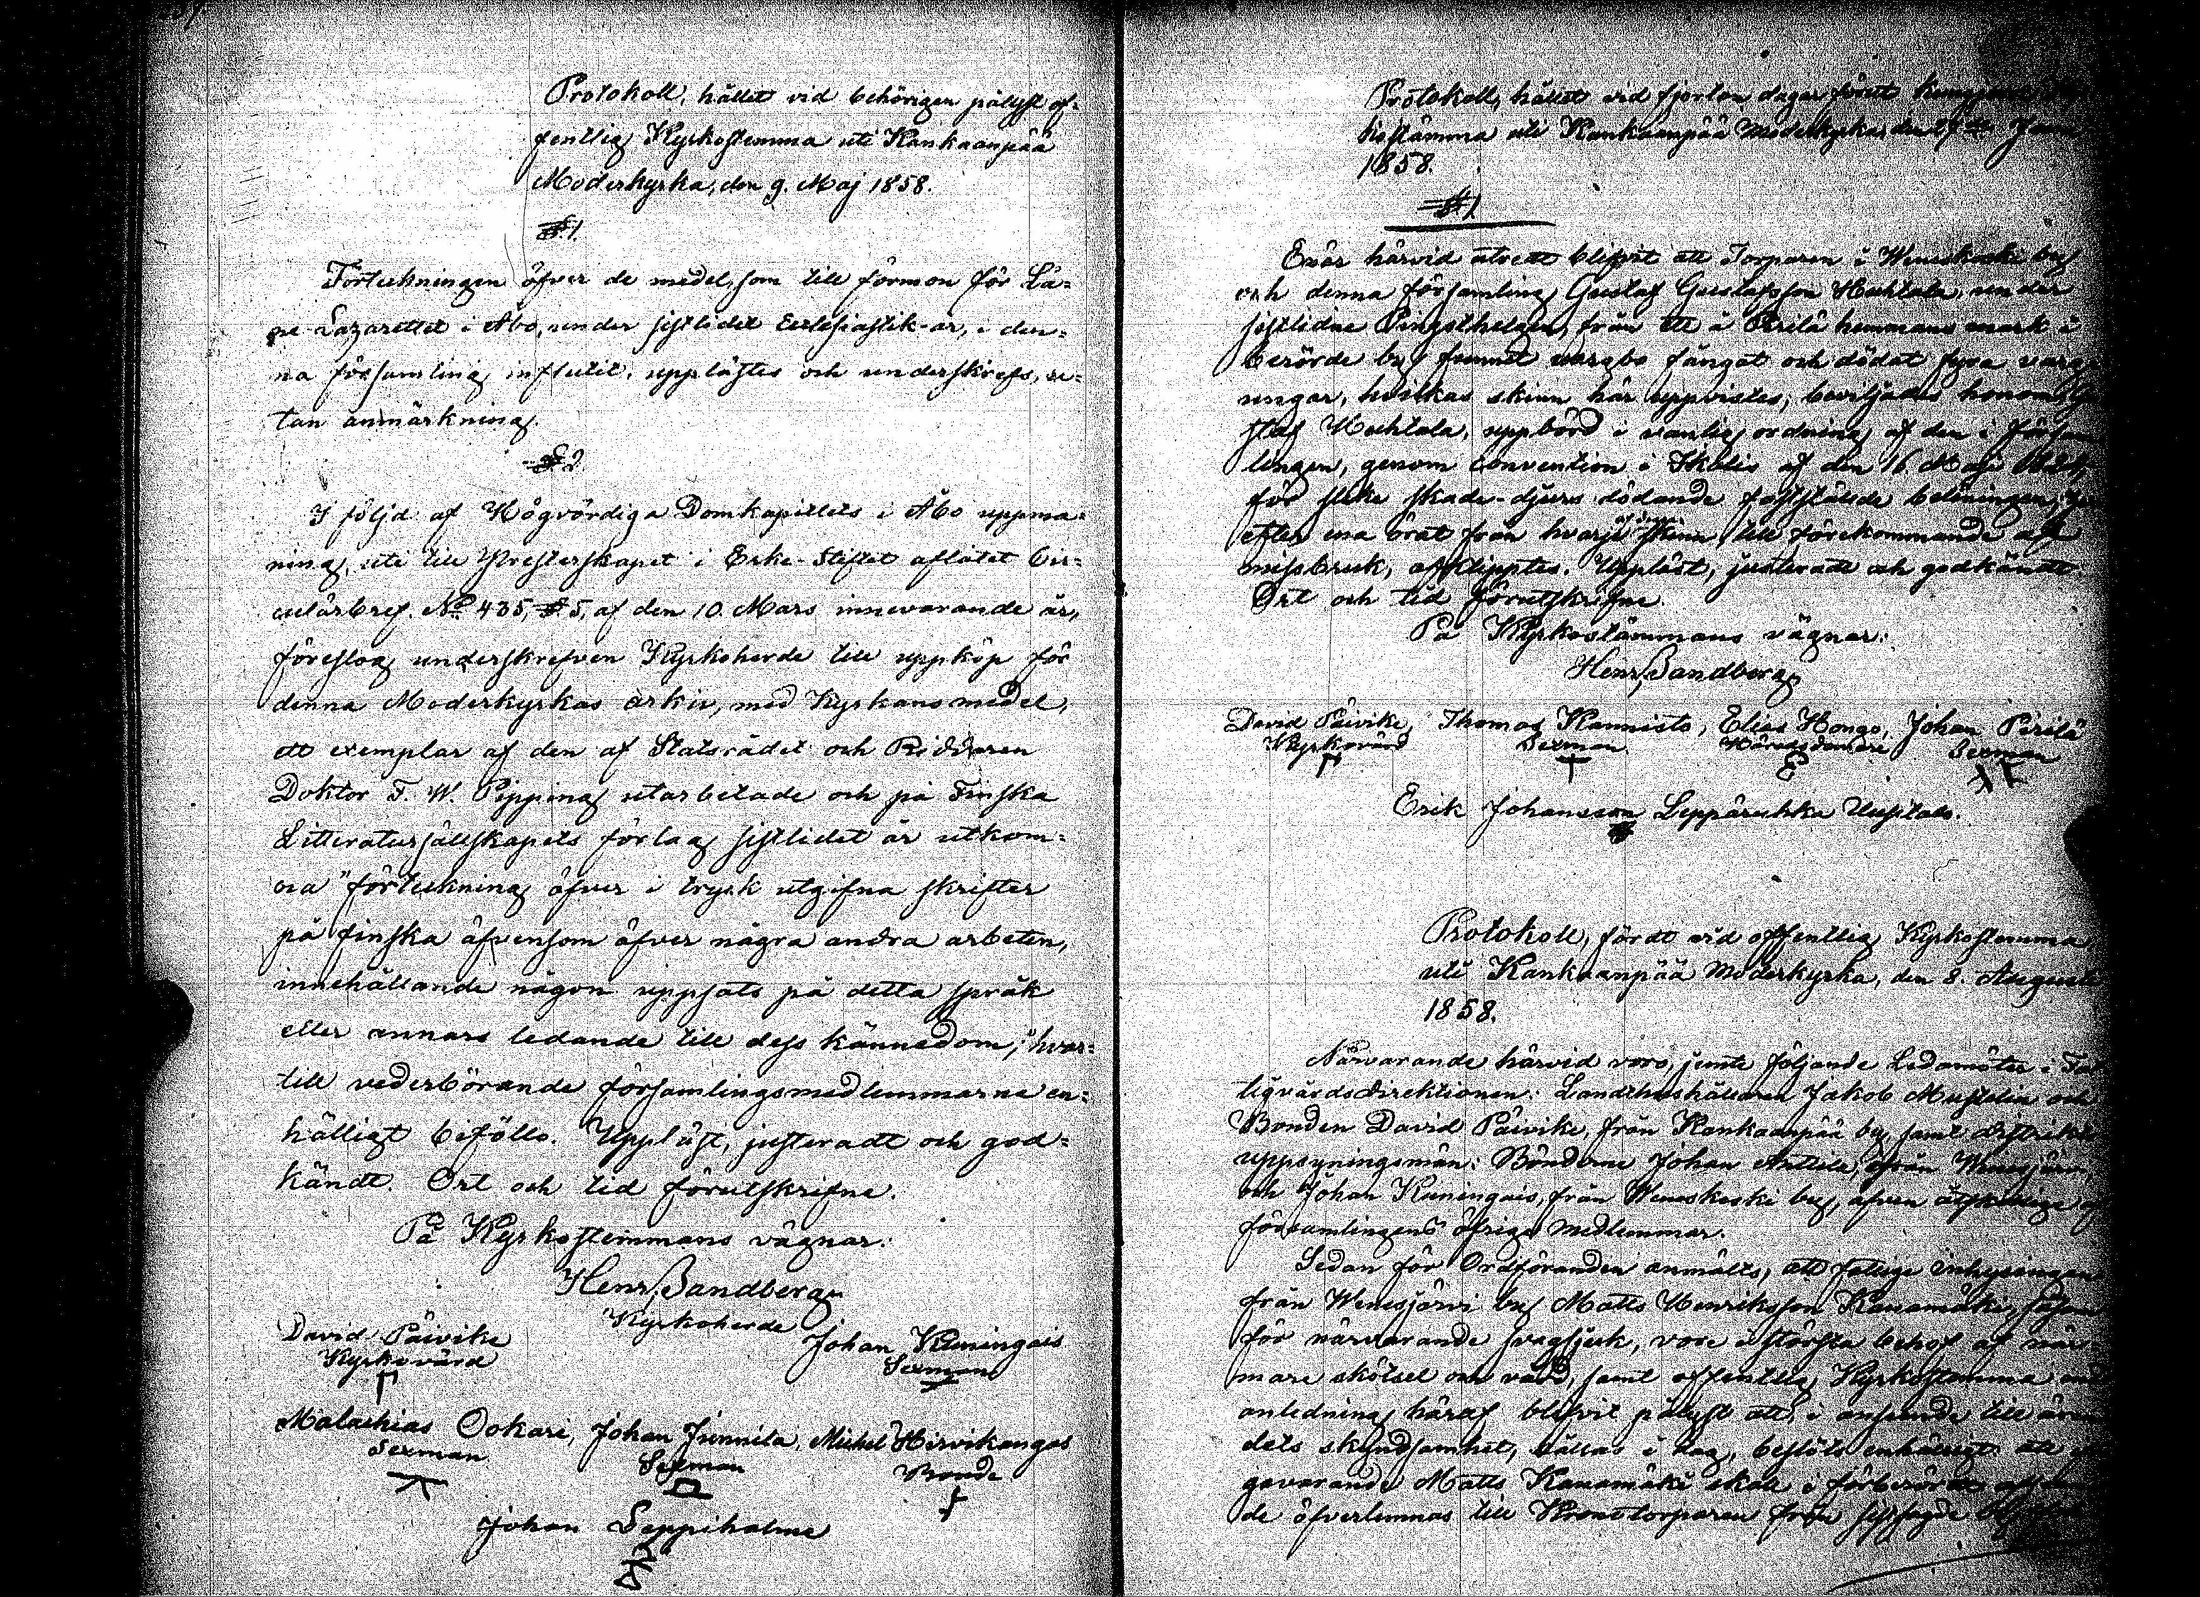 Protokoll, hållet vid behörigen pålyst of-
fentlig Kyrkostemma uti Kankaanpää
Moderkyrka, den 9. Maj 1858.
§.1.
Förteckningen öfver de medel, som till förmon för Lä-
ne-Lazarettet i Åbo, under sistlidet Ecclesiastik-år, i den-
na församling influtit, upplästes och underskrefs, u-
tan anmärkning.
§.2.
I följd af Högvördiga Domkapitlets i Åbo uppma-
ning, uti till Presterskapet i Erke-Stiftet aflåtet Cir-
culärbref. No 435, § 5, af den 10. Mars innevarande år,
föreslog underskrefven Kyrkoherde till uppköp för
denna Moderkyrkas arkiv, med Kyrkans medel,
ett exemplar af den af Statsrådet och Riddaren
Doktor F. W. Pipping utarbetade och på Finska
Litteratursällskapets förlag sistlidet år utkom-
na "förteckning öfver i tryck utgifna skrifter
på finska äfvensom öfver några andra arbeten,
innehållande någon uppsats på detta språk
eller annars ledande till dess kännedom," hvar-
till vederbörande församlingsmedlemmarne en-
hälligt biföllo. Uppläst, justeradt och god-
kändt. Ort och tid förutskrifne.
På Kyrkostemmans vägnar:
Henr. Sandberg
Kyrkoherde
David Päivike
Kyrkovärd
Johan Kuningais
Sexman
Malachias Ookari, Johan Junnila, Michel Hirvikangas
Sexman Sexman Bonde
Johan Seppiholme
Protokoll, hållet vid fjorton dagar förut
kostämma uti Kankaanpää Moderkyrka, den
1858.
§.1.
Enär härvid utredt blifvit att Torparen i Weneskoski by
och denna församling Gustaf Gustafsson Huhtala, under
sistlidne Pingsthelgen, från ett å Perilä hemmans mark i
berörde by funnet vargbo fångat och dödat fyra varg
ungar, hvilkas skinn här uppvistes, beviljades honom,
staf Huhtala, uppbörd i vanlig ordning af den i försam
lingen, genom convention i Ikalis af den 16 Maj
för slike skade-djurs dödande fastställde belöningen,
efter ena örat från hvarje af dessa skinn, till förekommande af
missbruk, afklipptes. Uppläst, justeradt och godkändt.
Ort och tid förutskrifne.
På Kyrkostämmans vägnar:
Henr. Sandberg
David Päivike, Thomas Kannisto, Elias Hongo, Johan Perilä
Kyrkovärd Sexman Häradsdomare Sexman
Erik Johansson Leppäruhka
Protokoll, fördt vid offentlig Kyrkostemma
uti Kankaanpää Moderkyrka, den 8. Augusti
1858.
Närvarande härvid voro, jemte följande Ledamöter i Fat
tigvårdsdirektionen: Landthushållaren Jakob Mustelin och
Bonden David Päivike, från Kankaanpää by, samt distrikts
uppsyningsmän: Bönderne Johan Anttila, från Wenesjärvi
och Johan Kuningais, från Weneskoski by, äfven åtskillige af
församlingens öfriga medlemmar.
Sedan för Ordföranden anmälts, att fattige inhysingen
från Wenesjärvi by Matts Henriksson Kanamäki, såsom
för närvarande svagsjuk, vore i största behof af när
mare skötsel och vård, samt offentlig Kyrkostemma
anledning häraf blifvit pålyst att, i anseende till ären
dets skyndsamhet, hållas i dag, beslöts enhälligt att
gavarande Matts Kanamäki skall i förberörde
de öfverlemnas till Kronotorparen från sistsagde